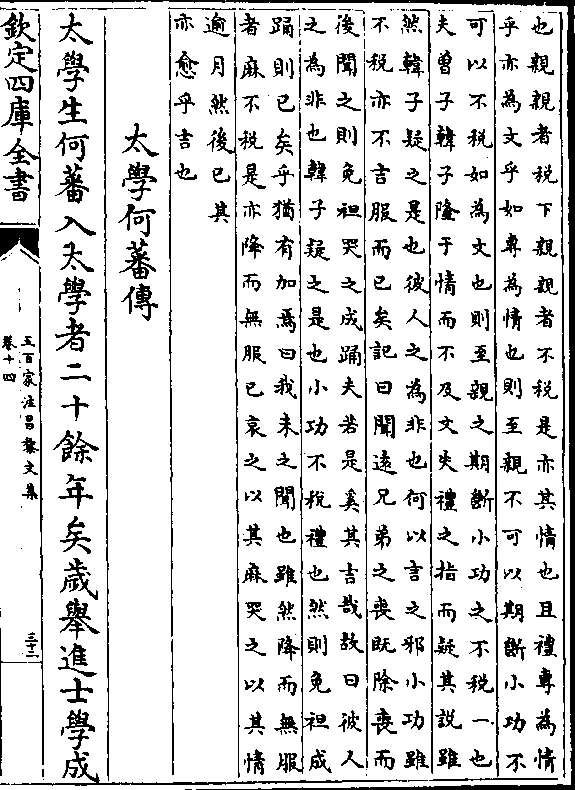 也親親者税下親親者不税是亦其情也且禮專為情
乎亦為文乎如專為情也則至親不可以期斷小功不
可以不税如為文也則至親之期斷小功之不税一也
夫曽子韓子隆于情而不及文失禮之指而疑其説雖
然韓子疑之是也彼人之為非也何以言之邪小功雖
不税亦不吉服而已矣記曰聞逺兄弟之喪既除喪而
後聞之則免袒哭之成踊夫若是奚其吉哉故曰彼人
之為非也韓子疑之是也小功不税禮也然則免袒成
踊則已矣乎猶有加焉曰我未之聞也雖然降而無服
者麻不税是亦降而無服已哀之以其麻哭之以其情
逾月然後已其
亦愈乎吉也
太學何蕃傳
太學生何蕃入太學者二十餘年矣歲舉進士學成
欽定四庫全書
五百家注昌黎文集
卷十四
三十二